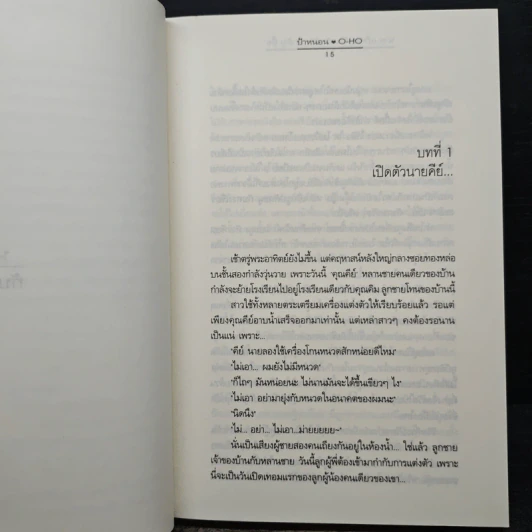 ป้าหนอน ♥ O-HO
15
บทที่ 1
เปิดตัวนายคีย์...
เช้าตรู่พระอาทิตย์ยังไม่ขึ้น แต่คฤหาสน์หลังใหญ่กลางซอยทองหล่อ
บนชั้นสองกำลังวุ่นวาย เพราะวันนี้ 'คุณคีย์' หลานชายคนเดียวของบ้าน
กำลังจะย้ายโรงเรียนไปอยู่โรงเรียนเดียวกับคุณคิม ลูกชายโทนของบ้านนี้
สาวใช้ทั้งหลายตระเตรียมเครื่องแต่งตัวให้เรียบร้อยแล้ว รอแต่
เพียงคุณคีย์อาบน้ำเสร็จออกมาเท่านั้น แต่เหล่าสาวๆ คงต้องรอนาน
เป็นแน่ เพราะ...
'คีย์ นายลองใช้เครื่องโกนหนวดสักหน่อยดีไหม'
'ไม่เอา... ผมยังไม่มีหนวด'
'ก็ไถๆ มันหน่อยนะ ไม่นานมันจะได้ขึ้นเขียวๆ ไง'
'ไม่เอา อย่ามายุ่งกับหนวดในอนาคตของผมนะ'
'นิดนึง'
'ไม่... อย่า... ไม่เอา...ม่ายยยยย~'
นั่นเป็นเสียงผู้ชายสองคนเถียงกันอยู่ในห้องน้ำ... ใช่แล้ว ลูกชาย
เจ้าของบ้านกับหลานชาย วันนี้ลูกผู้พี่ต้องเข้ามากำกับการแต่งตัว เพราะ
นี่จะเป็นวันเปิดเทอมแรกของลูกผู้น้องคนเดียวของเขา...